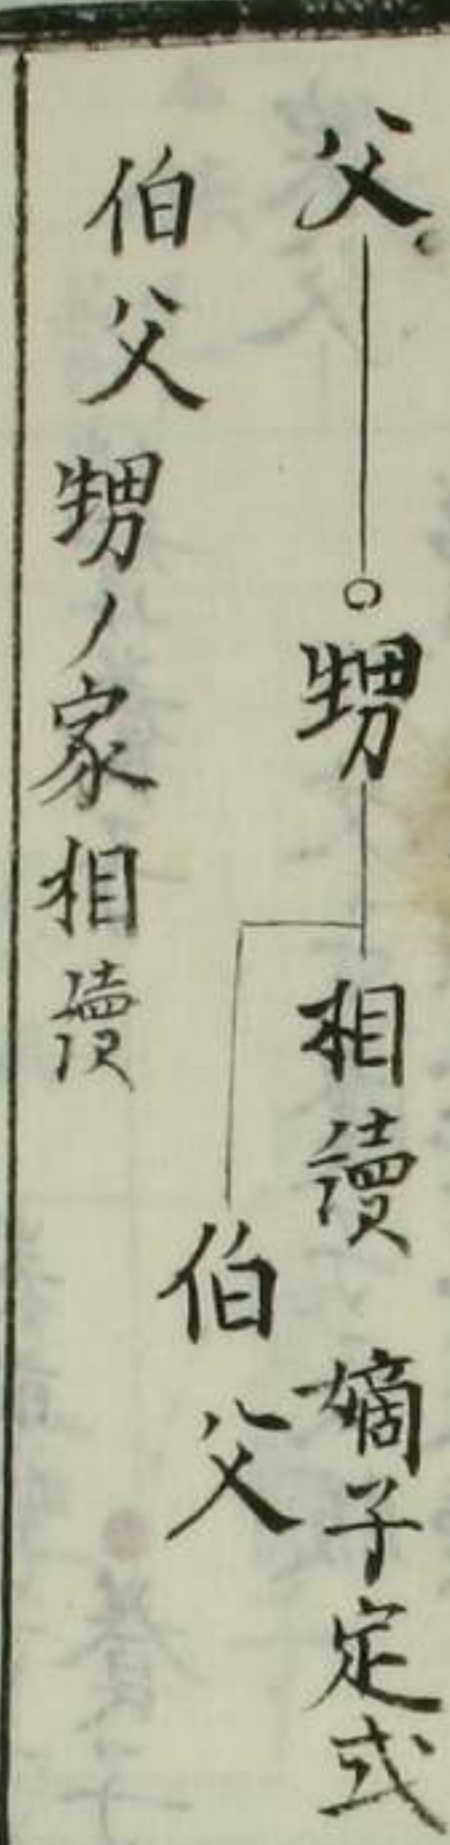 父 甥 相續 嫡子定式
伯父
伯父甥ノ家相續